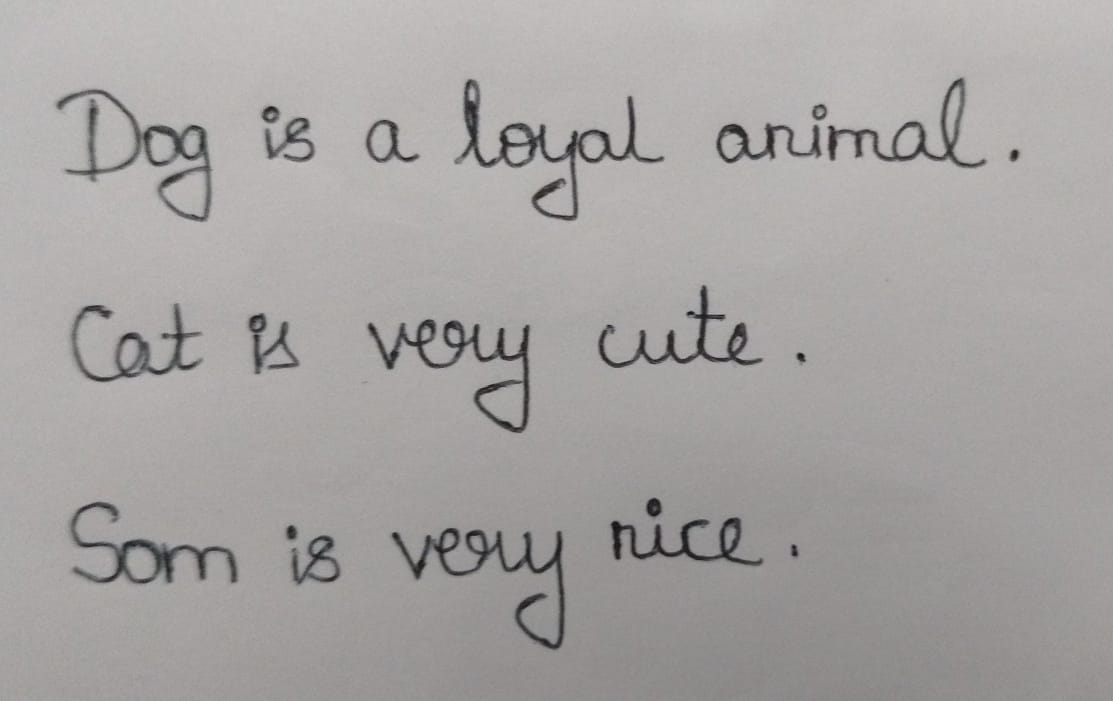 Dog is a loyal animal.
Cat is very cute.
Som is very nice.